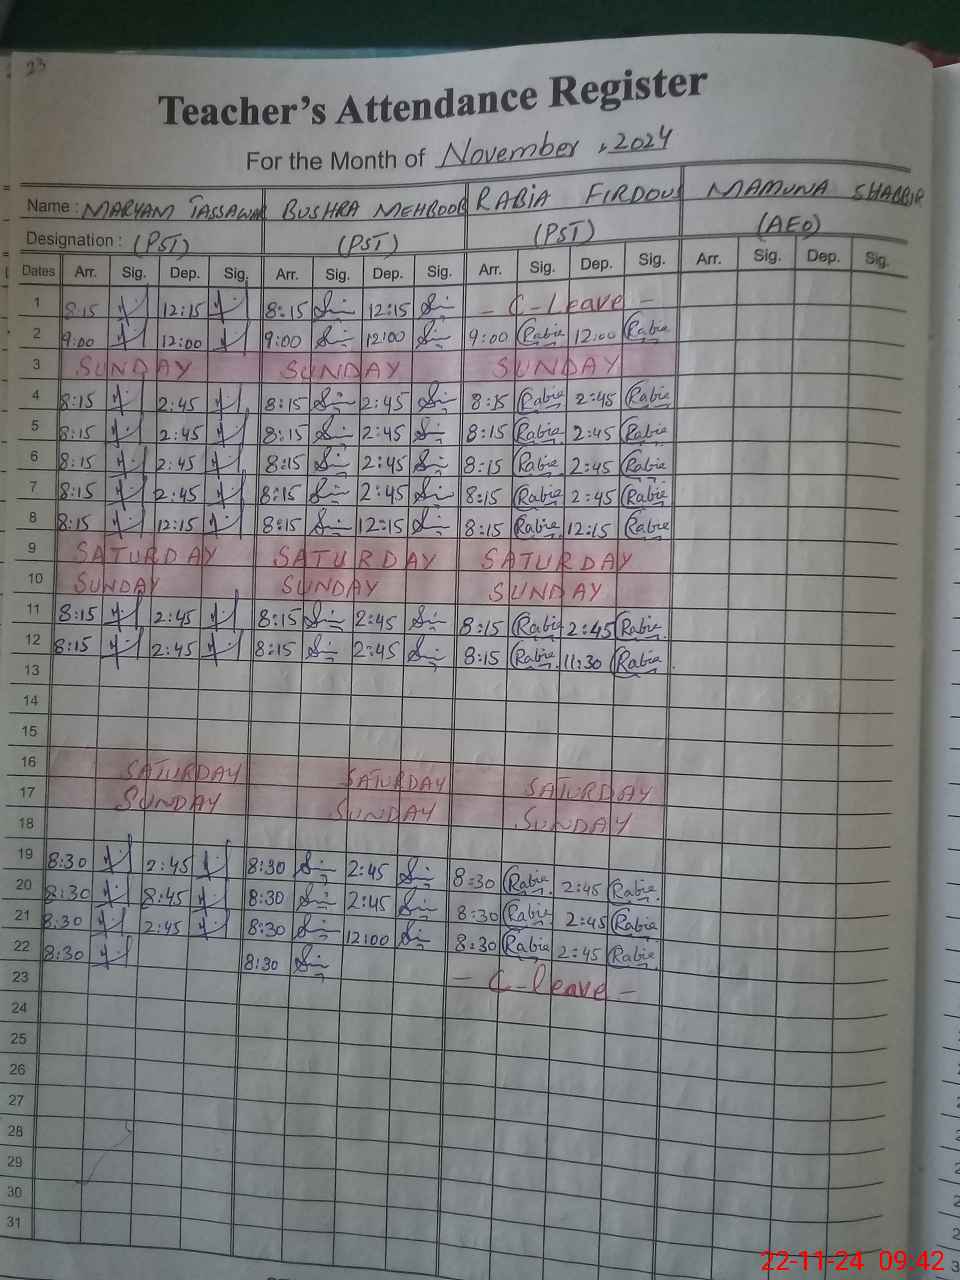 23
Teacher's Attendance Register
For the Month of November, 2024
Name: MARYAM TASSAWAR BUSHRA MEHBOOB RABIA FIRDOUS MAMUNA SHABBIR
Designation: (PST) (PST) (PST) (AEO)
Dates Arr. Sig. Dep. Sig. Arr. Sig. Dep. Sig. Arr. Sig. Dep. Sig. Arr. Sig. Dep. Sig.
1 8:15 12:15 8:15 12:15 - C-Leave -
2 9:00 12:00 9:00 12:00 9:00 Rabia 12:00 Rabia
3 SUNDAY SUNDAY SUNDAY
4 8:15 2:45 8:15 2:45 8:15 Rabia 2:45 Rabia
5 8:15 2:45 8:15 2:45 8:15 Rabia 2:45 Rabia
6 8:15 2:45 8:15 2:45 8:15 Rabia 2:45 Rabia
7 8:15 2:45 8:15 2:45 8:15 Rabia 2:45 Rabia
8 8:15 12:15 8:15 12:15 8:15 Rabia 12:15 Rabia
9 SATURDAY SATURDAY SATURDAY
10 SUNDAY SUNDAY SUNDAY
11 8:15 2:45 8:15 2:45 8:15 Rabia 2:45 Rabia
12 8:15 2:45 8:15 2:45 8:15 Rabia 11:30 Rabia
13
14
15
16 SATURDAY SATURDAY SATURDAY
17 SUNDAY SUNDAY SUNDAY
18
19 8:30 2:45 8:30 2:45 8:30 Rabia 2:45 Rabia
20 8:30 8:45 8:30 2:45 8:30 Rabia 2:45 Rabia
21 8:30 2:45 8:30 12:00 8:30 Rabia 2:45 Rabia
22 8:30 8:30 - C-leave -
23
24
25
26
27
28
29
30
31
22-11-24 09:42